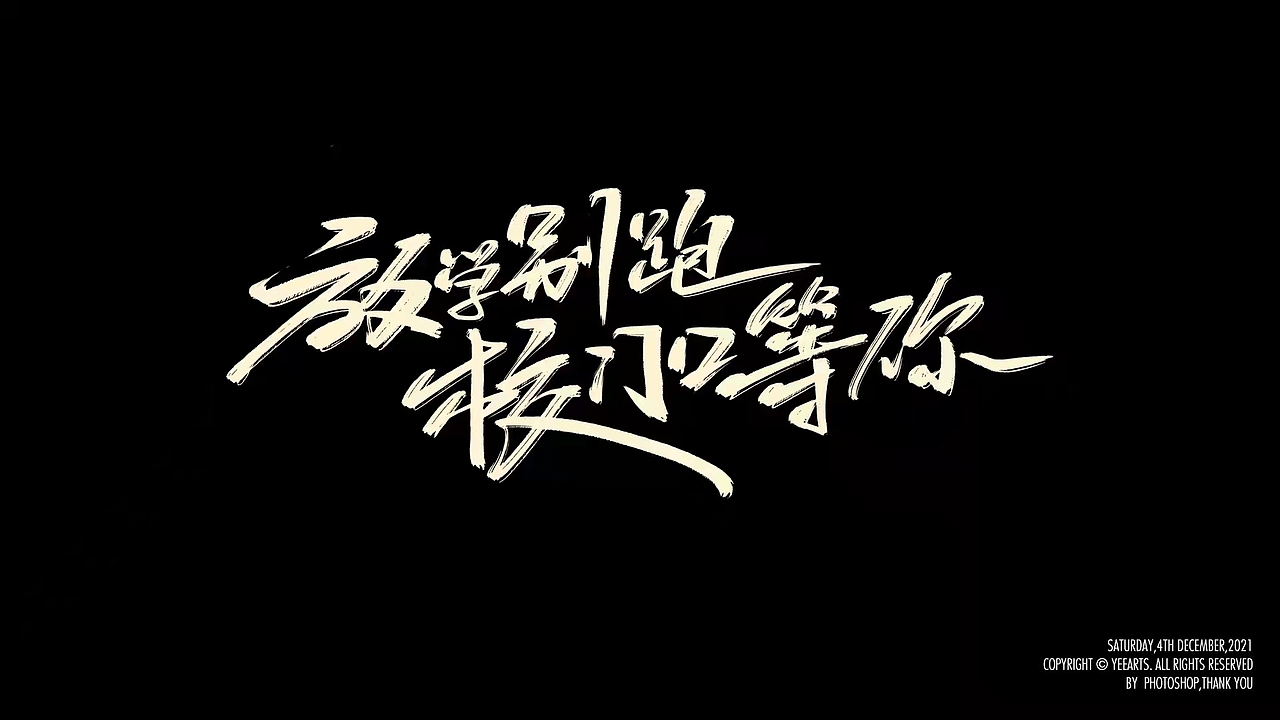 放学别跑
校门口等你
SATURDAY,4TH DECEMBER,2021
COPYRIGHT © YEEARTS. ALL RIGHTS RESERVED
BY PHOTOSHOP,THANK YOU